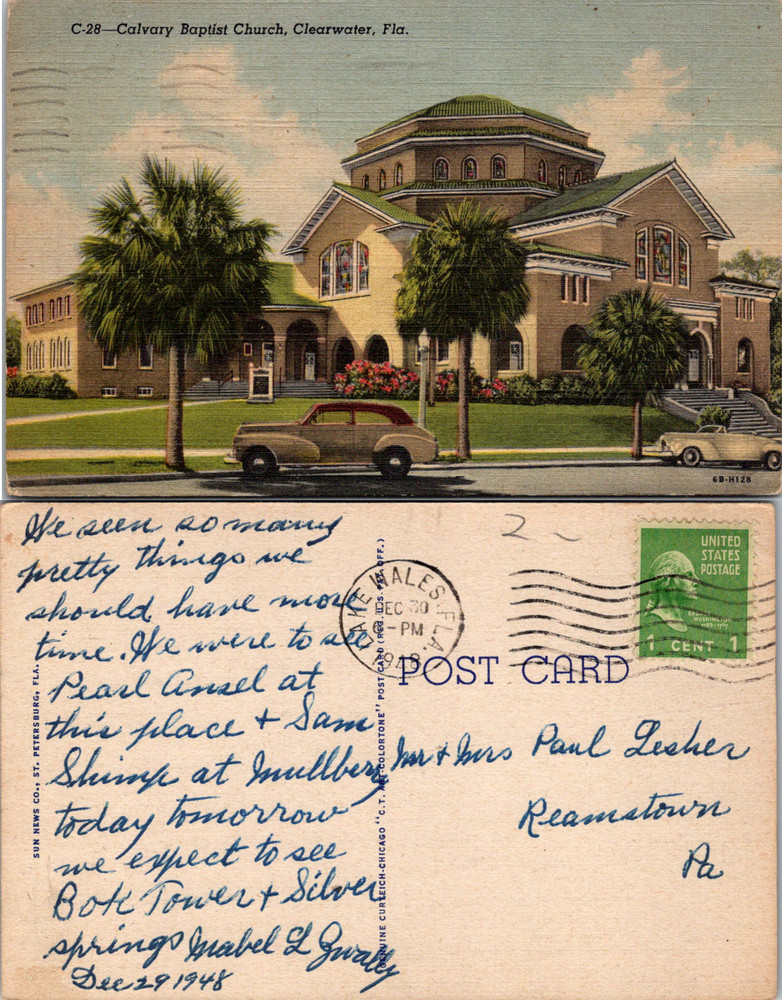 C-28—Calvary Baptist Church, Clearwater, Fla.
6B-H128
We seen so many
pretty things we
should have more
time. We were to see
Pearl Ansel at
this place + Sam
Shimp at Mullberry
today tomorrow
we expect to see
Bok Tower + Silver
springs Mabel L Zwally
Dec 29 1948
SUN NEWS CO., ST. PETERSBURG, FLA.
GENUINE CURTEICH-CHICAGO "C.T. ART-COLORTONE" POST CARD (REG. U.S. PAT. OFF.)
2
LAKE WALES, FLA.
DEC 30
6-PM
1948
UNITED
STATES
POSTAGE
GEORGE
WASHINGTON
1789-1797
1 CENT 1
POST CARD
Mr + Mrs Paul Lesher
Reamstown
Pa